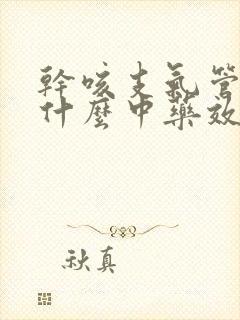 幹咳支氣管
什麼中藥效
秋真